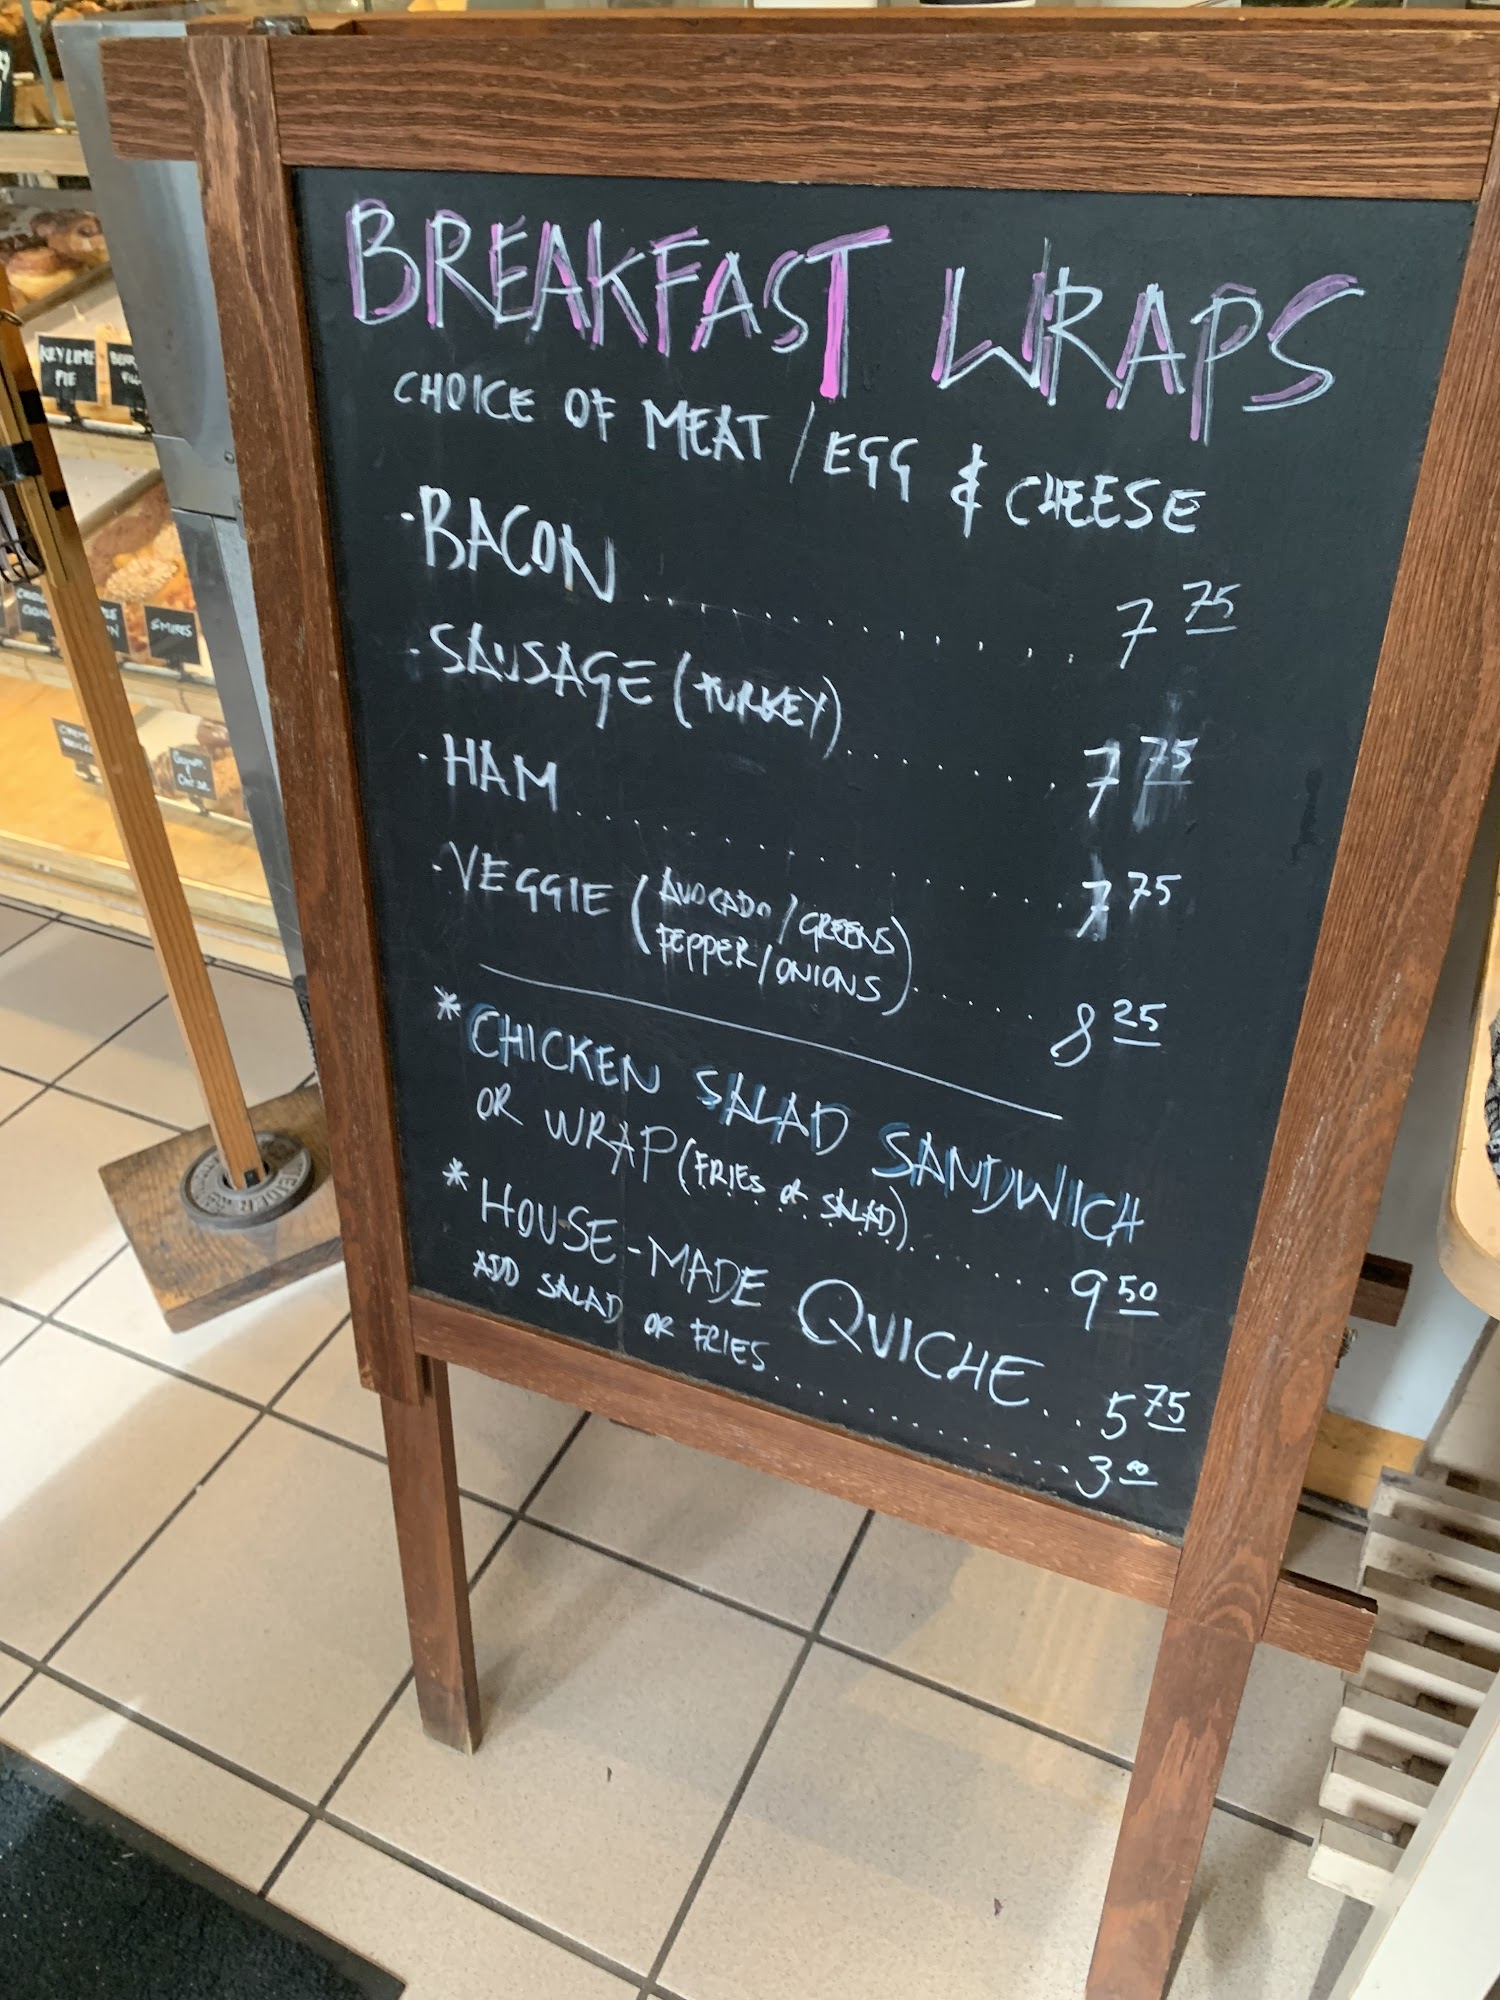 BREAKFAST WRAPS
CHOICE OF MEAT / EGG & CHEESE
- BACON .............. 7 75
- SAUSAGE (TURKEY) ........ 7 75
- HAM .............. 7 75
- VEGGIE (AVOCADO / GREENS
PEPPER / ONIONS) ..... 8 25
* CHICKEN SALAD SANDWICH
OR WRAP (FRIES OR SALAD) ....... 9 50
* HOUSE-MADE QUICHE ... 5 75
ADD SALAD OR FRIES ............... 3 00
KEY LIME
PIE
S'MORES